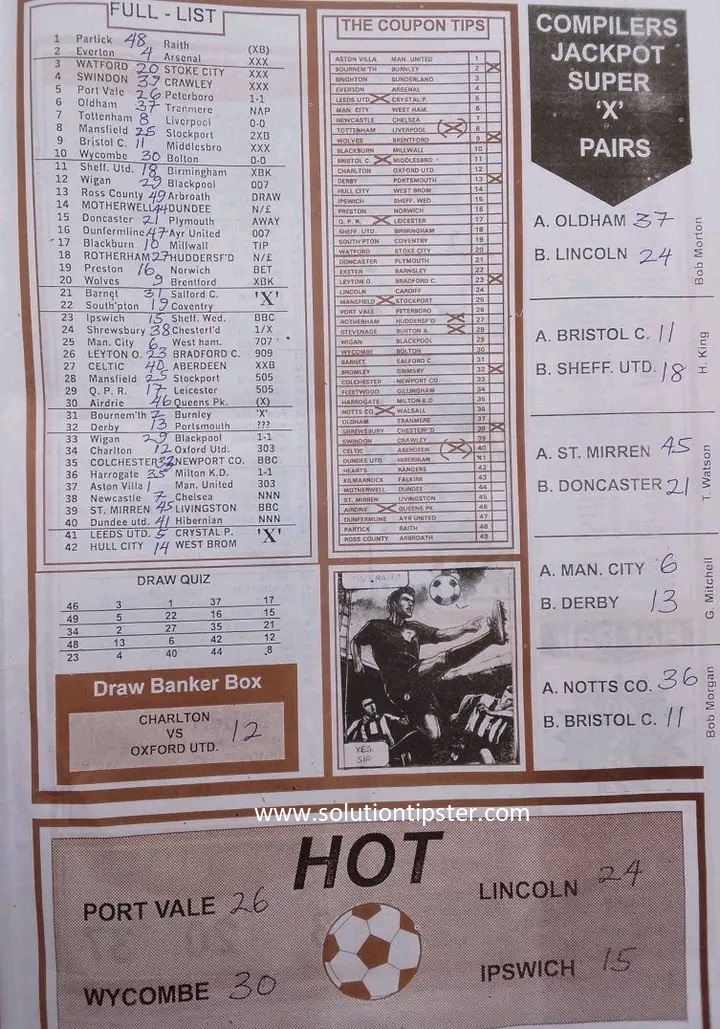 FULL - LIST
1 Partick 48 Raith
2 Everton 4 Arsenal (XB)
3 WATFORD 20 STOKE CITY XXX
4 SWINDON 39 CRAWLEY XXX
5 Port Vale 26 Peterboro 1-1
6 Oldham 37 Tranmere NAP
7 Tottenham 8 Liverpool 0-0
8 Mansfield 25 Stockport 2XB
9 Bristol C. 11 Middlesbro XXX
10 Wycombe 30 Bolton 0-0
11 Sheff. Utd. 18 Birmingham XBK
12 Wigan 29 Blackpool 007
13 Ross County 49 Arbroath DRAW
14 MOTHERWELL 44 DUNDEE N/£
15 Doncaster 21 Plymouth AWAY
16 Dunfermline 47 Ayr United 007
17 Blackburn 10 Millwall TIP
18 ROTHERHAM 27 HUDDERSF'D N/£
19 Preston 16 Norwich BET
20 Wolves 9 Brentford XBK
21 Barnet 31 Salford C. 'X'
22 South'pton 19 Coventry
23 Ipswich 15 Sheff. Wed. BBC
24 Shrewsbury 38 Chesterf'd 1/X
25 Man. City 6 West ham. 707
26 LEYTON O. 23 BRADFORD C. 909
27 CELTIC 40 ABERDEEN XXB
28 Mansfield 25 Stockport 505
29 Q. P. R. 17 Leicester 505
30 Airdrie 46 Queens Pk. (X)
31 Bournem'th 2 Burnley 'X'
32 Derby 13 Portsmouth ???
33 Wigan 29 Blackpool 1-1
34 Charlton 12 Oxford Utd. 303
35 COLCHESTER 33 NEWPORT CO. BBC
36 Harrogate 35 Milton K.D. 1-1
37 Aston Villa 1 Man. United 303
38 Newcastle 7 Chelsea NNN
39 ST. MIRREN 45 LIVINGSTON BBC
40 Dundee utd. 41 Hibernian NNN
41 LEEDS UTD. 5 CRYSTAL P. 'X'
42 HULL CITY 14 WEST BROM
DRAW QUIZ
46 3 1 37 17
49 5 22 16 15
34 2 27 35 21
48 13 6 42 12
23 4 40 44 8
Draw Banker Box
CHARLTON
VS 12
OXFORD UTD.
THE COUPON TIPS
ASTON VILLA MAN. UNITED 1
BOURNEM'TH BURNLEY 2 X
BRIGHTON SUNDERLAND 3
EVERSON ARSENAL 4
LEEDS UTD X CRYSTAL P. 5
MAN. CITY WEST HAM. 6
NEWCASTLE CHELSEA 7
TOTTENHAM LIVERPOOL (X) 8
WOLVES BRENTFORD 9 X
BLACKBURN MILLWALL 10
BRISTOL C. X MIDDLESBRO 11
CHARLTON OXFORD UTD 12
DERBY PORTSMOUTH 13 X
HULL CITY WEST BROM. 14
IPSWICH SHEF. WED. 15
PRESTON NORWICH 16
Q. P. R. X LEICESTER 17
SHEFF. UTD. BIRMINGHAM 18
SOUTH'PTON COVENTRY 19
WATFORD STOKE CITY 20
DONCASTER PLYMOUTH 21
EXETER BARNSLEY 22
LEYTON O. BRADFORD C. 23 X
LINCOLN CARDIFF 24
MANSFIELD X STOCKPORT 25
PORT VALE PETERBORO 26
ROTHERHAM HUDDERSF'D X 27
STEVENAGE BURTON A. X 28
WIGAN BLACKPOOL 29
WYCOMBE BOLTON 30
BARNET SALFORD C. 31
BROMLEY GRIMSBY 32 X
COLCHESTER NEWPORT CO. 33
FLEETWOOD GILLINGHAM 34
HARROGATE MILTON K.D 35
NOTTS CO. X WALSALL 36
OLDHAM TRANMERE 37
SHREWSBURY CHESTERF'D 38 X
SWINDON CRAWLEY 39
CELTIC ABERDEEN (X) 40
DUNDEE UTD HIBERNIAN 41
HEARTS RANGERS 42
KILMARNOCK FALKIRK 43
MOTHERWELL DUNDEE 44
ST. MIRREN LIVINGSTON 45
AIRDRIE X QUEENS PK 46
DUNFERMLINE AYR UNITED 47
PARTICK RAITH 48
ROSS COUNTY ARBROATH 49
YES
SIR
COMPILERS
JACKPOT
SUPER
'X'
PAIRS
A. OLDHAM 37
B. LINCOLN 24
Bob Morton
A. BRISTOL C. 11
B. SHEFF. UTD. 18
H. King
A. ST. MIRREN 45
B. DONCASTER 21
T. Watson
A. MAN. CITY 6
B. DERBY 13
G. Mitchell
A. NOTTS CO. 36
B. BRISTOL C. 11
Bob Morgan
www.solutiontipster.com
HOT
PORT VALE 26
LINCOLN 24
WYCOMBE 30
IPSWICH 15